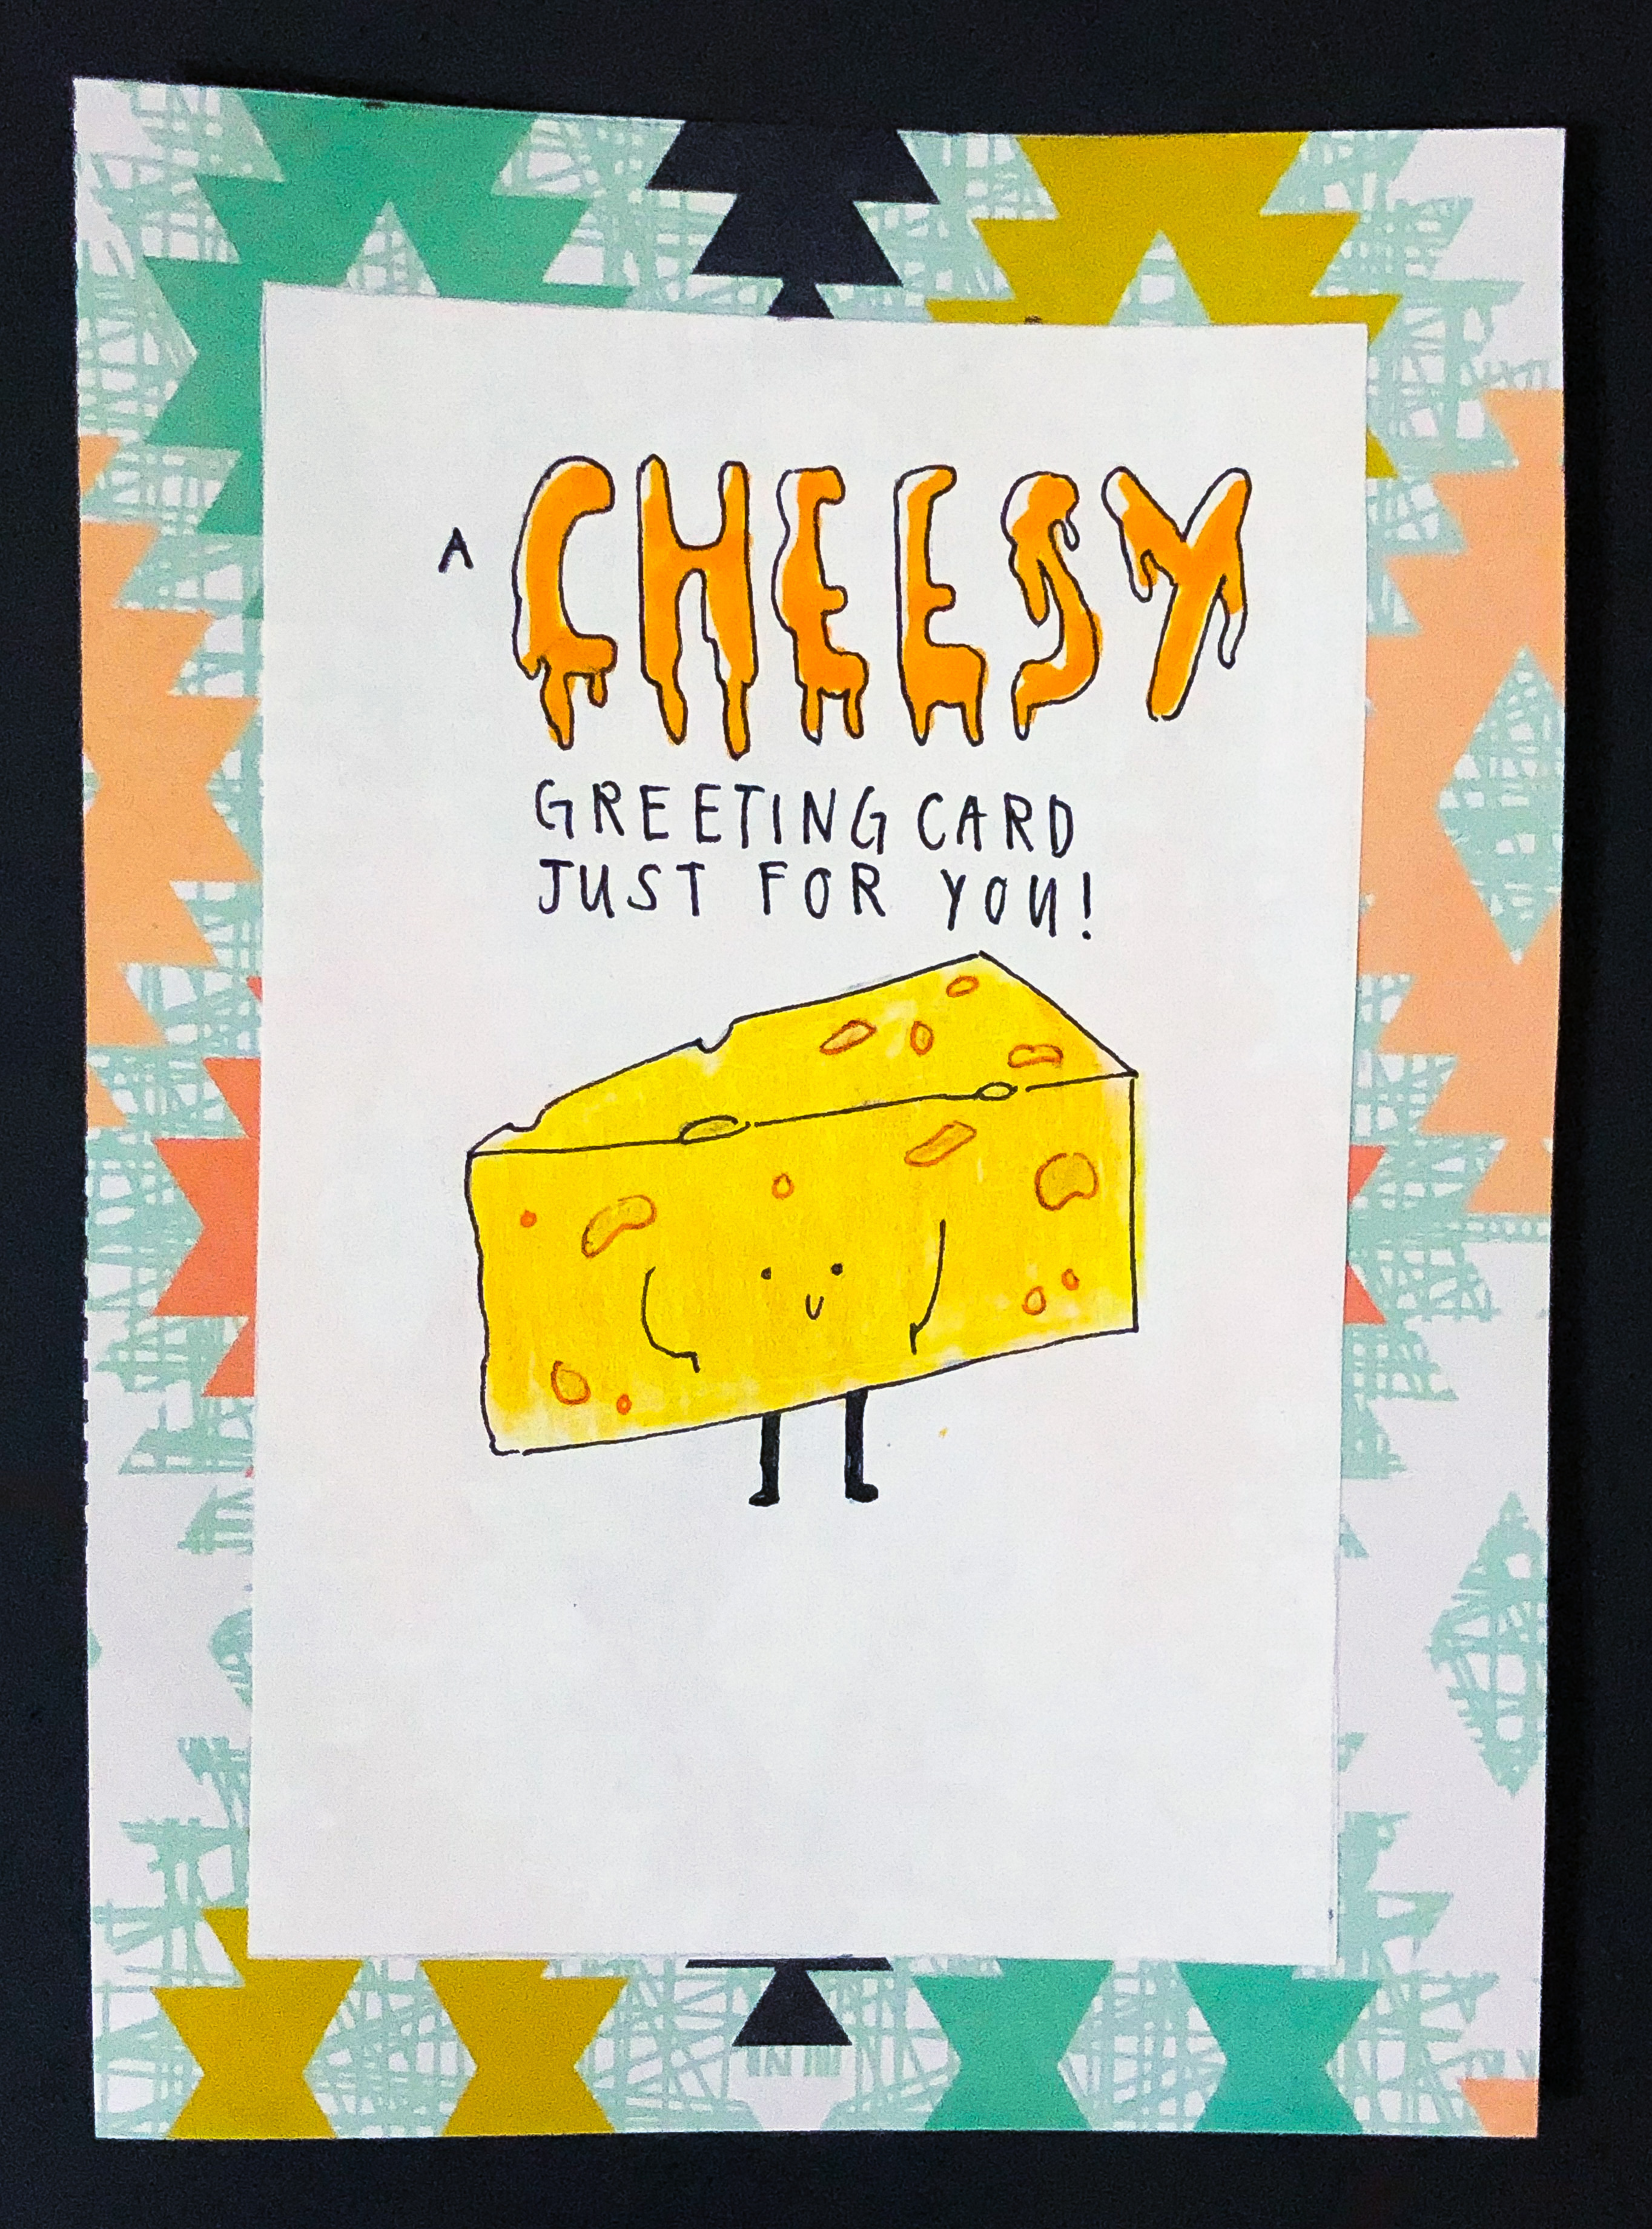 A CHEESY
GREETING CARD
JUST FOR YOU!